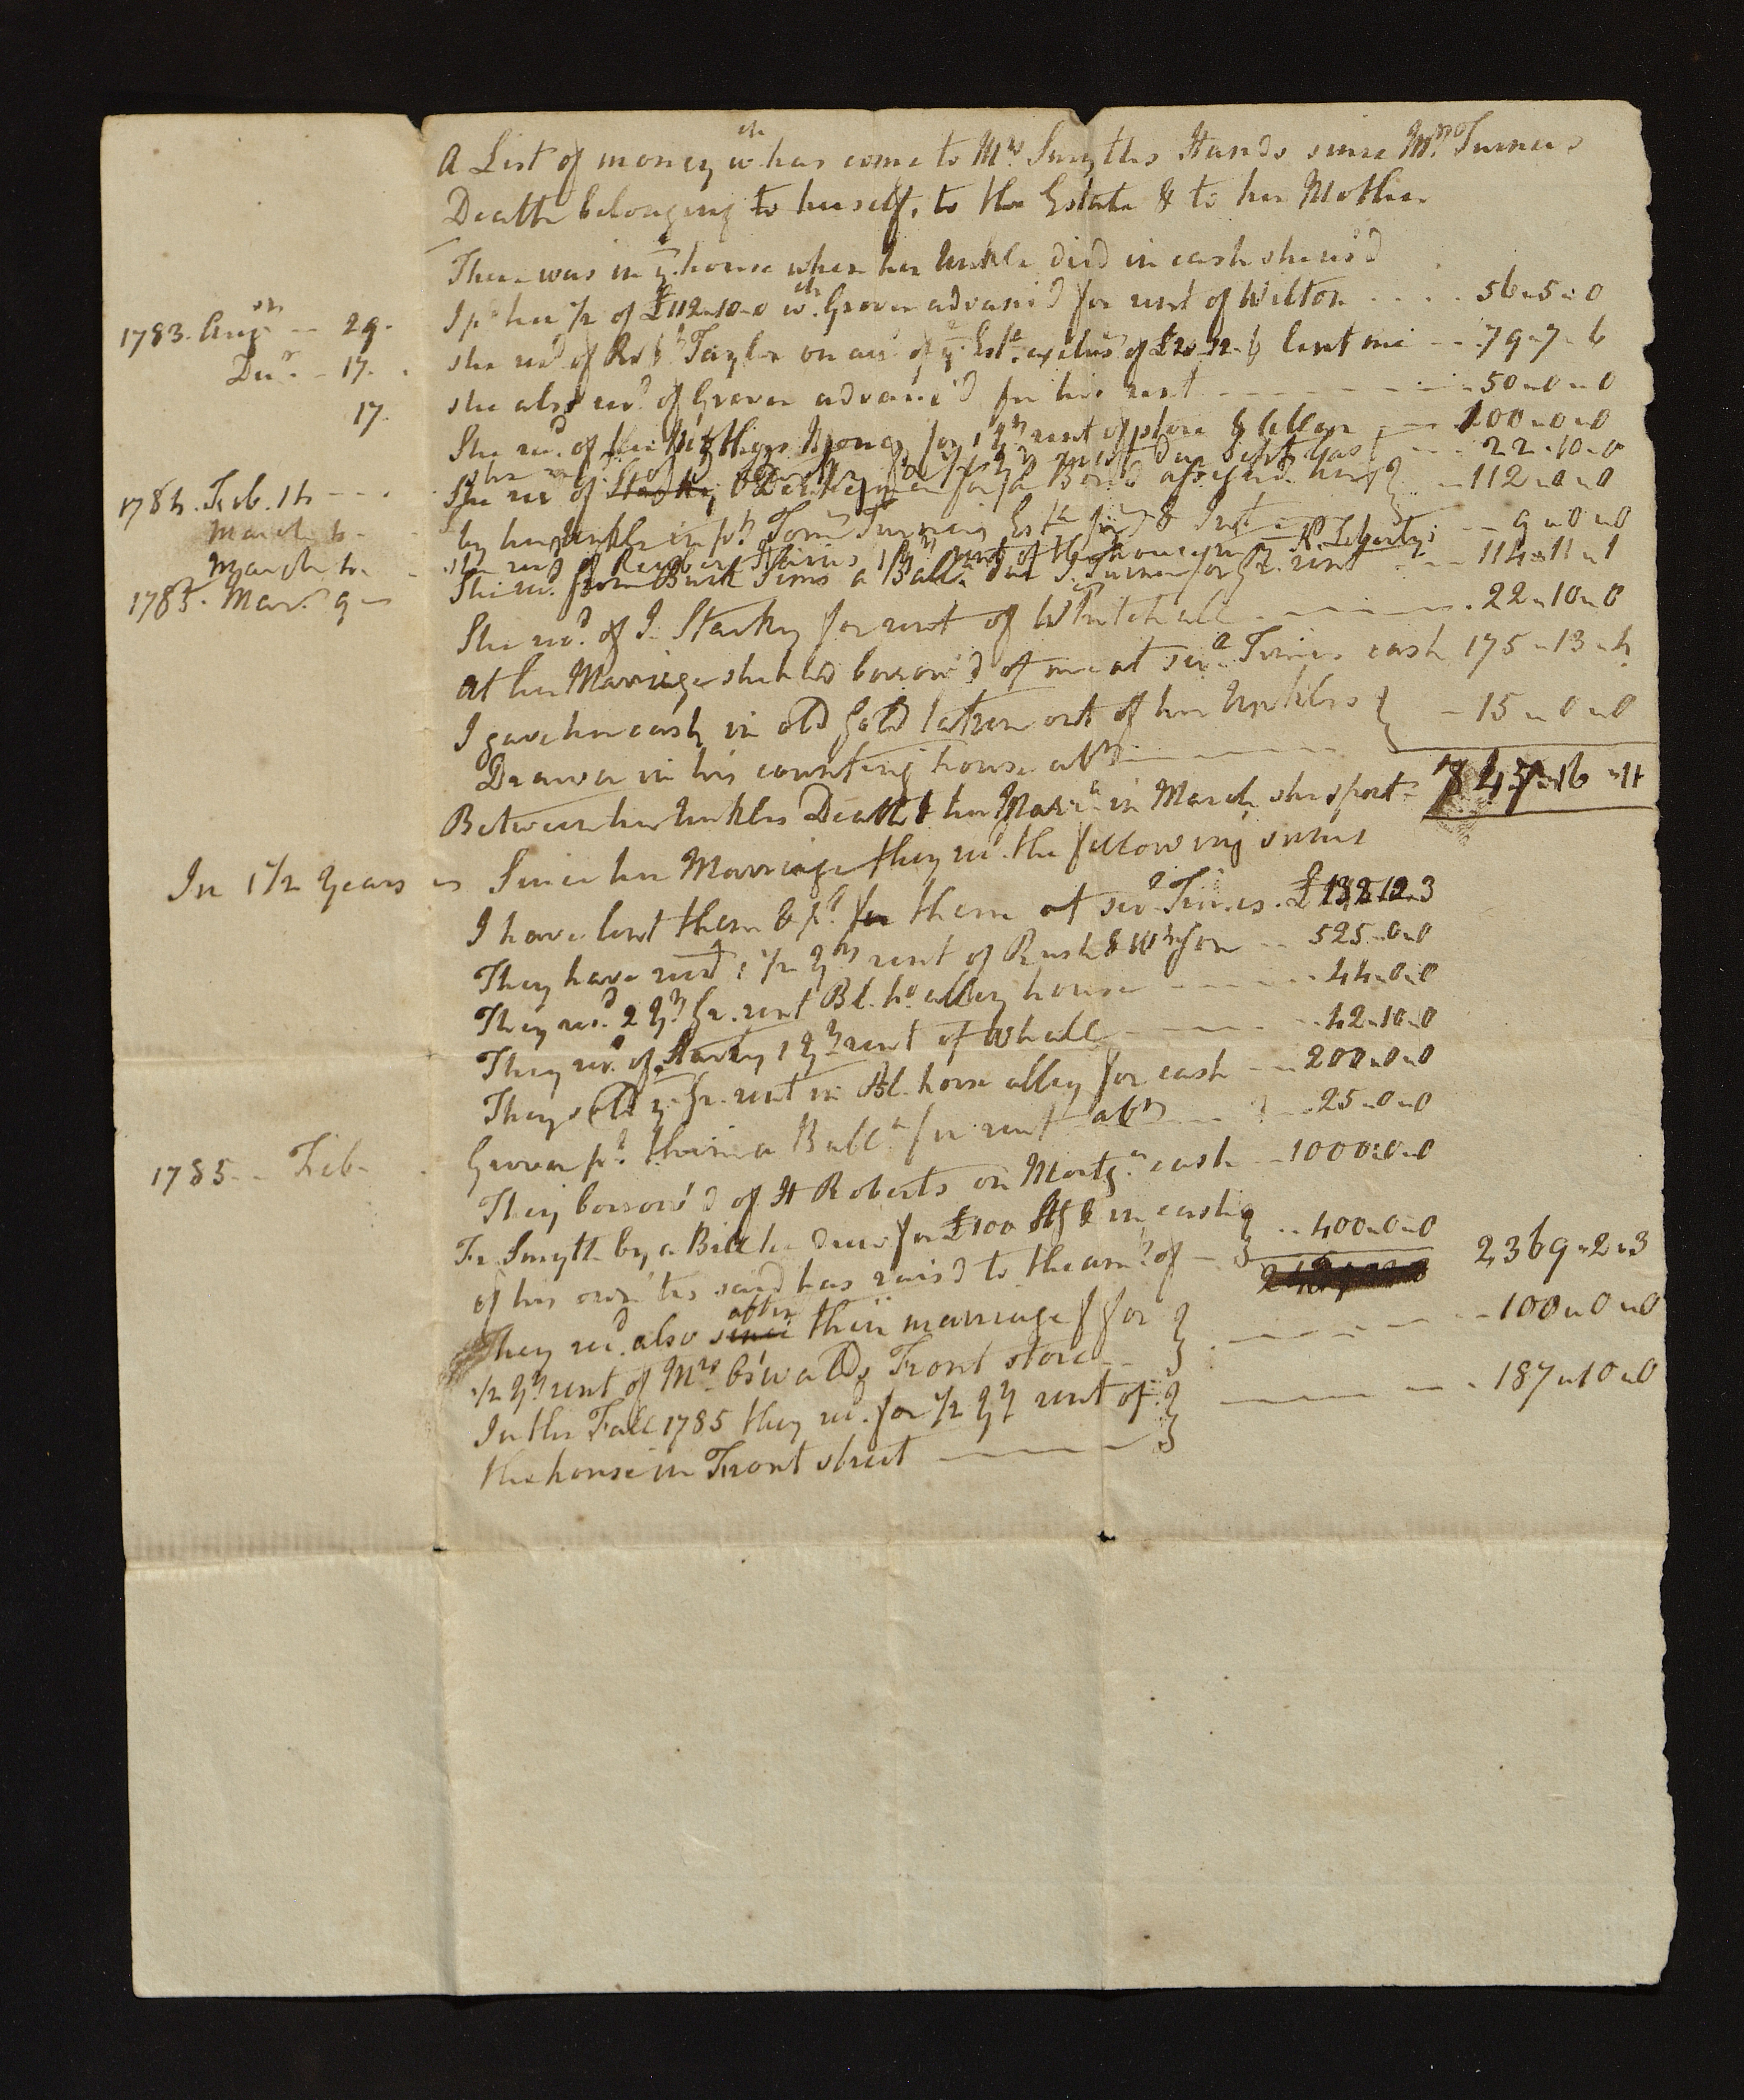 A List of money wch has come to Mrs Smyths Hands since Mr Turners
Death belonging to herself, to the Estate & to her Mother
There was in ye house when her Unkle died in cash she us'd
1783. Augst -- 29. I pd her 1/2 of £112-10-0 wch Grover advanc'd for rent of Wilton .... 56-5-0
Decr - 17. she recd of Robt Taylor on acct of ye Este exclus of lent me -- 79-7-6
17. she also recd of Grover advanc'd for his rent ---- 50-0-0
She recd of for 1 yrs rent of store & cellar -- 100-0-0
22-10-0
1784. Feb. 14 --- She recd of Starkey for a Bond assign'd her } -- 112-0-0
March by her Unkle in pt Turners Este
March 4. she recd of Reuben Haines 1 yrs rent of -- 9-0-0
1785. Mar. 9 - She recd from a Balla due J. Turner for Gr. rent -- 114-11-1
She recd of J. Starkey for rent of Whitehall ---- 22-10-0
at her Marriage she had borrow'd of me at sevl Times cash 175-13-4
I gave her cash in old Gold taken out of her Unkles } - 15-0-0
Drawer in his counting house abt ----
Between her Unkles Death & her Marre in March she spent - 747-16-11
In 1 1/2 Years Since her Marriage they recd the following sums
I have lent them & pd for them at sevl Times. £132-12-3
They have recd 1 1/2 yrs rent of Rush & -- 525-0-0
They recd 2 yrs Gr. rent Bl. ho. alley house ---- 44-0-0
They recd of Starkey 1 yrs rent of Whall ---- 42-10-0
They sold ye Gr. rent in Bl. horse alley for cash -- 200-0-0
Grover pd them a Balle for rent abt --- 25-0-0
1785 -- Feb - They borrow'd of H Roberts on Mortge cash -- 1000-0-0
Fr. Smyth by a Bill he drew for £100 Stg & in cash } -- 400-0-0
of his own he said has rais'd to the amt of - } 2369-2-3
They recd also since after their marriage for } ---- 100-0-0
1/2 yrs rent of Mrs Oswalds Front store -- }
In the Fall 1785 they recd for 1/2 yrs rent of } ---- 187-10-0
the house in Front street ---- }